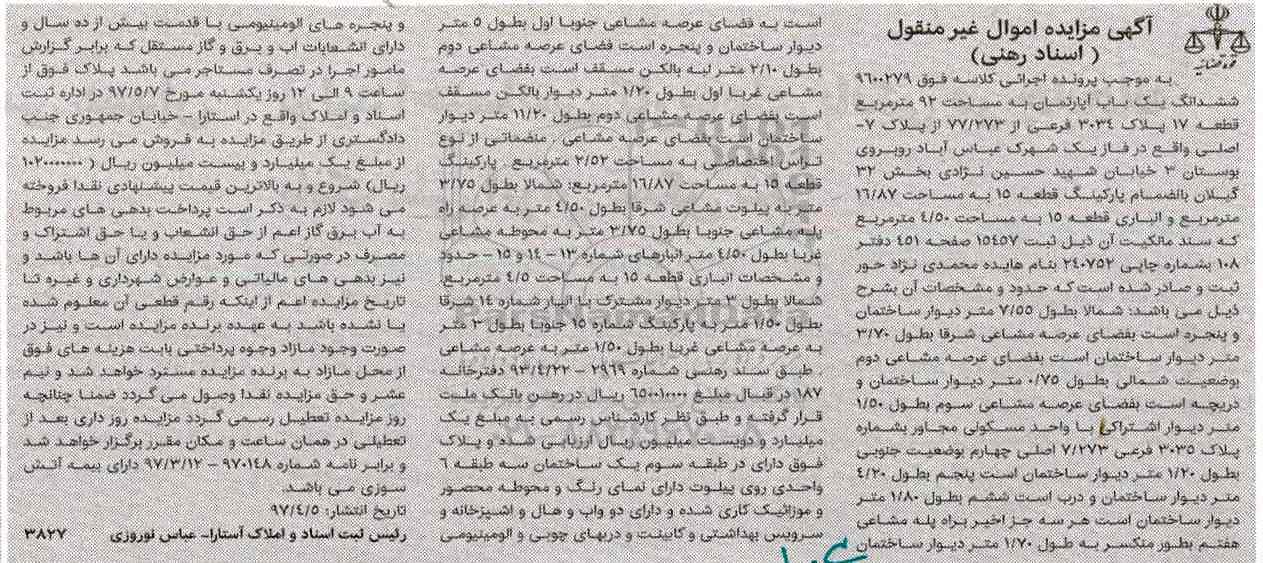 آگهی مزایده اموال غیر منقول
( اسناد رهنی)
قوه قضائیه
به موجب پرونده اجرائی کلاسه فوق ۹۶۰۰۲۷۹
ششدانگ یک باب آپارتمان به مساحت ۹۲ مترمربع
قطعه ۱۷ پلاک ۳۰۳۴ فرعی از ۷۷/۲۷۳ از پلاک ۷-
اصلی واقع در فاز یک شهرک عباس آباد روبروی
بوستان ۳ خیابان شهید حسین نژادی بخش ۳۲
گیلان بالضمام پارکینگ قطعه ۱۵ به مساحت ۱۶/۸۷
مترمربع و انباری قطعه ۱۵ به مساحت ۴/۵۰ مترمربع
که سند مالکیت آن ذیل ثبت ۱۵۴۵۷ صفحه ۴۵۱ دفتر
۱۰۸ بشماره چاپی ۲۴۰۷۵۲ بنام هایده محمدی نژاد حور
ثبت و صادر شده است که حدود و مشخصات آن بشرح
ذیل می باشد: شمالا بطول ۷/۵۵ متر دیوار ساختمان
و پنجره است بفضای عرصه مشاعی شرقا بطول ۳/۷۰
متر دیوار ساختمان است بفضای عرصه مشاعی دوم
بوضعیت شمالی بطول ۰/۷۵ متر دیوار ساختمان و
دریچه است بفضای عرصه مشاعی سوم بطول ۱/۵۰
متر دیوار اشتراکی با واحد مسکونی مجاور بشماره
پلاک ۳۰۳۵ فرعی ۷/۲۷۳ اصلی چهارم بوضعیت جنوبی
بطول ۱/۲۰ متر دیوار ساختمان است پنجم بطول ۴/۲۰
متر دیوار ساختمان و درب است ششم بطول ۱/۸۰ متر
دیوار ساختمان است هر سه جز اخیر براه پله مشاعی
هفتم بطور منکسر به طول ۱/۷۰ متر دیوار ساختمان
است به فضای عرصه مشاعی جنوبا اول بطول ۵ متر
دیوار ساختمان و پنجره است فضای عرصه مشاعی دوم
بطول ۲/۱۰ متر لبه بالکن مسقف است بفضای عرصه
مشاعی غربا اول بطول ۱/۲۰ متر دیوار بالکن مسقف
است بفضای عرصه مشاعی دوم بطول ۱۱/۲۰ متر دیوار
ساختمان است بفضای عرصه مشاعی . منضماتی از نوع
تراس اختصاصی به مساحت ۲/۵۲ مترمربع . پارکینگ
قطعه ۱۵ به مساحت ۱۶/۸۷ مترمربع: شمالا بطول ۳/۷۵
متر به پیلوت مشاعی شرقا بطول ۴/۵۰ متر به عرصه راه
پله مشاعی جنوبا بطول ۳/۷۵ متر به محوطه مشاعی
غربا بطول ۴/۵۰ متر انبارهای شماره ۱۳ - ۱۴ و ۱۵ - حدود
و مشخصات انباری قطعه ۱۵ به مساحت ۴/۵ مترمربع.
شمالا بطول ۳ متر دیوار مشترک با انبار شماره ۱۴ شرقا
بطول ۱/۵۰ متر به پارکینگ شماره ۱۵ جنوبا بطول ۳ متر
به عرصه مشاعی غربا بطول ۱/۵۰ متر به عرصه مشاعی
. طبق سند رهنی شماره ۲۹۶۹ - ۹۳/۴/۲۲ دفترخانه
۱۸۷ در قبال مبلغ ۶۵۰۰۱۰۰۰۰ ریال در رهن بانک ملت
قرار گرفته و طبق نظر کارشناس رسمی به مبلغ یک
میلیارد و دویست میلیون ریال ارزیابی شده و پلاک
فوق دارای در طبقه سوم یک ساختمان سه طبقه ۶
واحدی روی پیلوت دارای نمای رنگ و محوطه محصور
و موزائیک کاری شده و دارای دو واب و هال و اشپزخانه و
سرویس بهداشتی و کابینت و دربهای چوبی و الومینیومی
و پنجره های الومینیومی با قدمت بیش از ده سال و
دارای انشعابات اب و برق و گاز مستقل که برابر گزارش
مامور اجرا در تصرف مستاجر می باشد پلاک فوق از
ساعت ۹ الی ۱۲ روز یکشنبه مورخ ۹۷/۵/۷ در اداره ثبت
اسناد و املاک واقع در استارا - خیابان جمهوری جنب
دادگستری از طریق مزایده به فروش می رسد مزایده
از مبلغ یک میلیارد و بیست میلیون ریال ( ۱۰۲۰۰۰۰۰۰۰
ریال) شروع و به بالاترین قیمت پیشنهادی نقدا فروخته
می شود لازم به ذکر است پرداخت بدهی های مربوط
به آب برق گاز اعم از حق انشعاب و یا حق اشتراک و
مصرف در صورتی که مورد مزایده دارای آن ها باشد و
نیز بدهی های مالیاتی و عوارض شهرداری و غیره تا
تاریخ مزایده اعم از اینکه رقم قطعی آن معلوم شده
یا نشده باشد به عهده برنده مزایده است و نیز در
صورت وجود مازاد وجوه پرداختی بابت هزینه های فوق
از محل مازاد به برنده مزایده مسترد خواهد شد و نیم
عشر و حق مزایده نقدا وصول می گردد ضمنا چنانچه
روز مزایده تعطیل رسمی گردد مزایده روز داری بعد از
تعطیلی در همان ساعت و مکان مقرر برگزار خواهد شد
و برابر نامه شماره ۹۷۰۱۴۸ - ۹۷/۳/۱۲ دارای بیمه آتش
سوزی می باشد.
تاریخ انتشار: ۹۷/۴/۵
رئیس ثبت اسناد و املاک آستارا- عباس نوروزی ۳۸۲۷